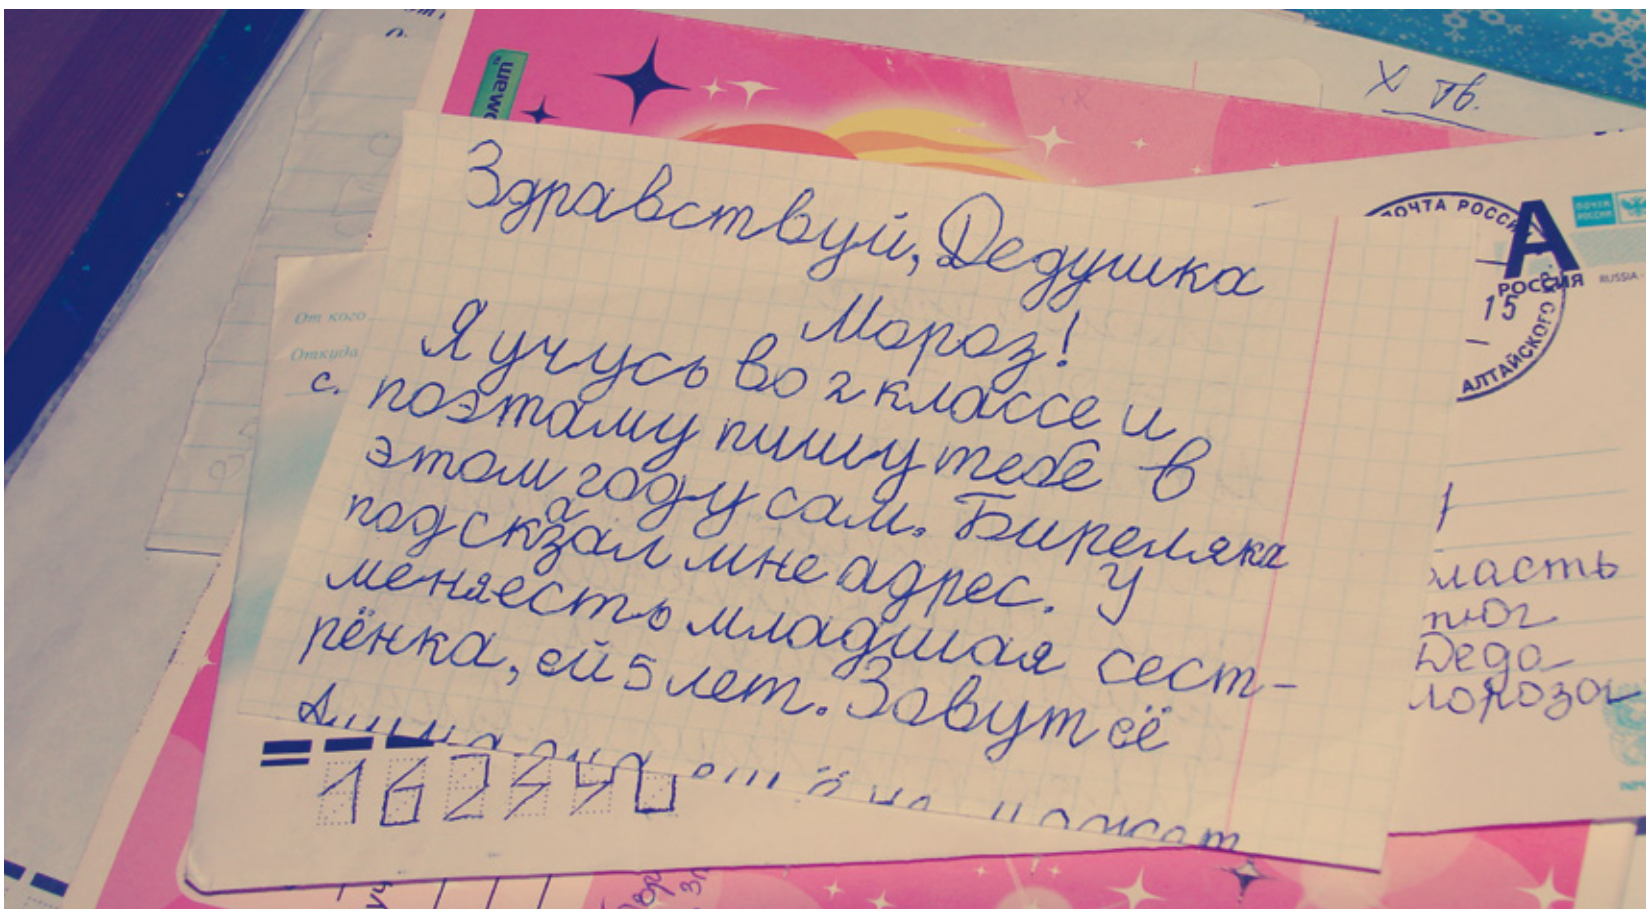 омат
X тв.
Здравствуй, Дедушка
Мороз!
Я учусь во 2 классе и
поэтаму пишу тебе в
этом году сам. Биреляка
подсказал мне адрес. У
меня есть младшая сест-
рёнка, ей 5 лет. Завут её
От кого
Откуда
с.
ПОЧТА РОССИИ
А
РОССИЯ
RUSSIA
15
АЛТАЙСКОГО
ПОЧТА
РОССИИ
ласть
тюг
Деда
Мороза